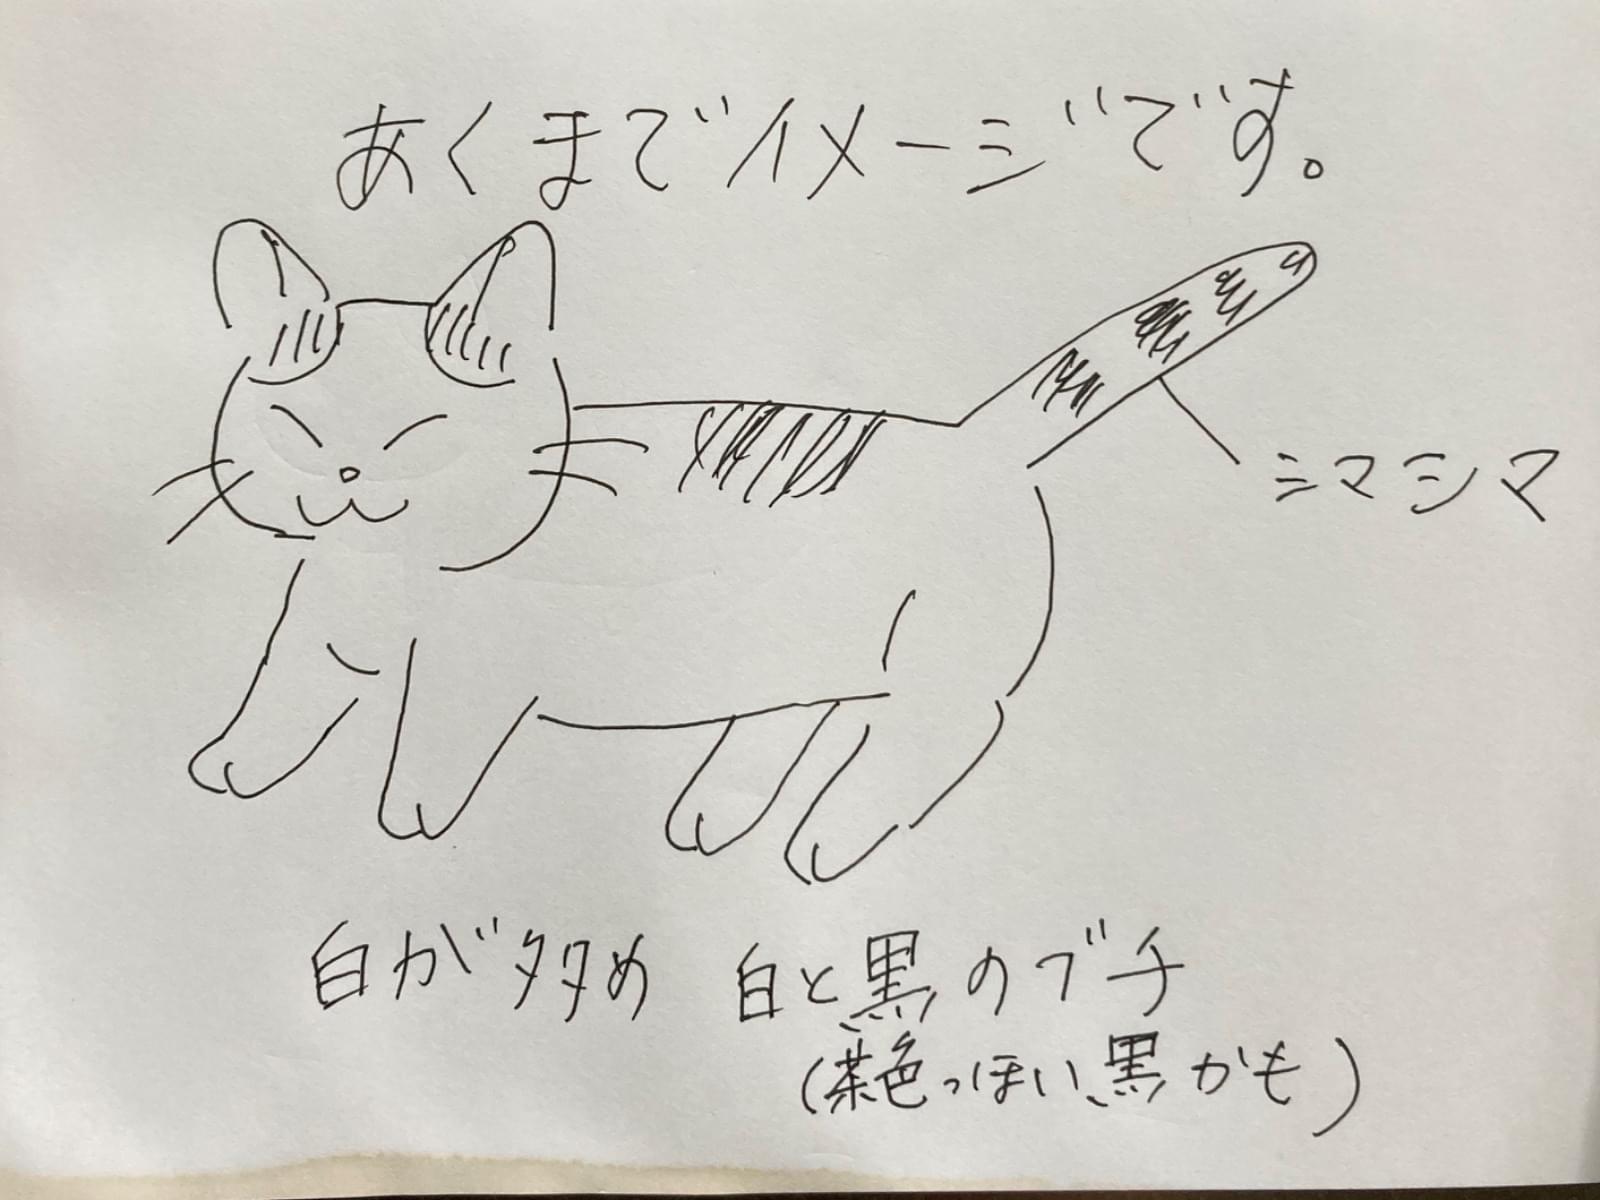 あくまでイメージです。
シマシマ
白が多め 白と黒のブチ
(茶色っぽい黒かも)